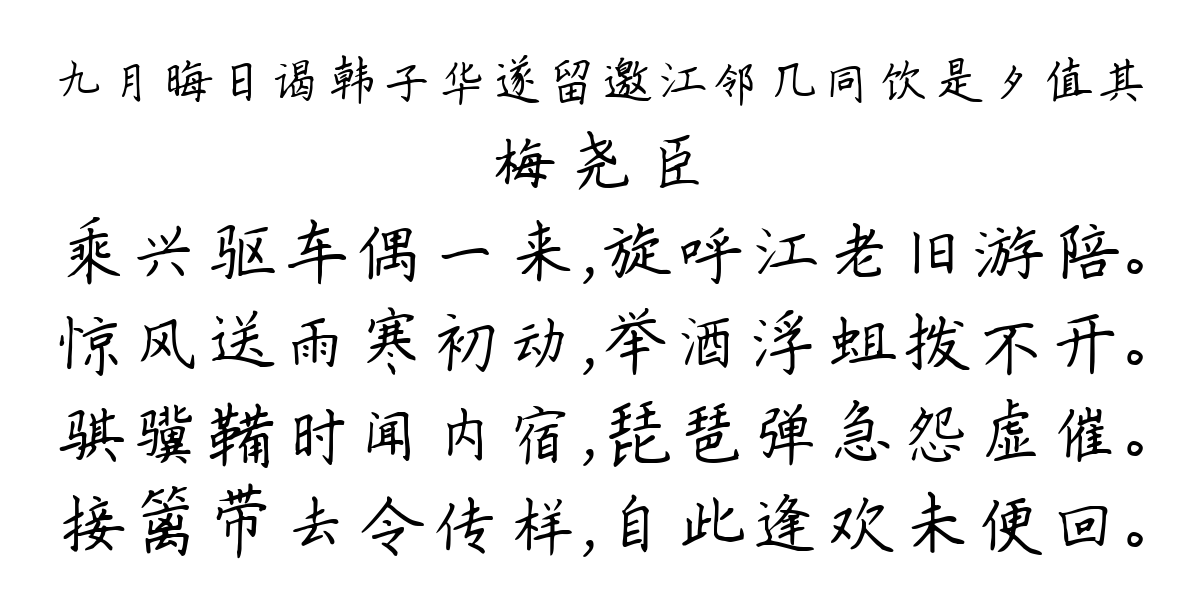 九月晦日谒韩子华遂留邀江邻几同饮是夕值其
梅尧臣
乘兴驱车偶一来,旋呼江老旧游陪。
惊风送雨寒初动,举酒浮蛆拨不开。
骐骥鞴时闻内宿,琵琶弹急怨虚催。
接篱带去令传样,自此逢欢未便回。